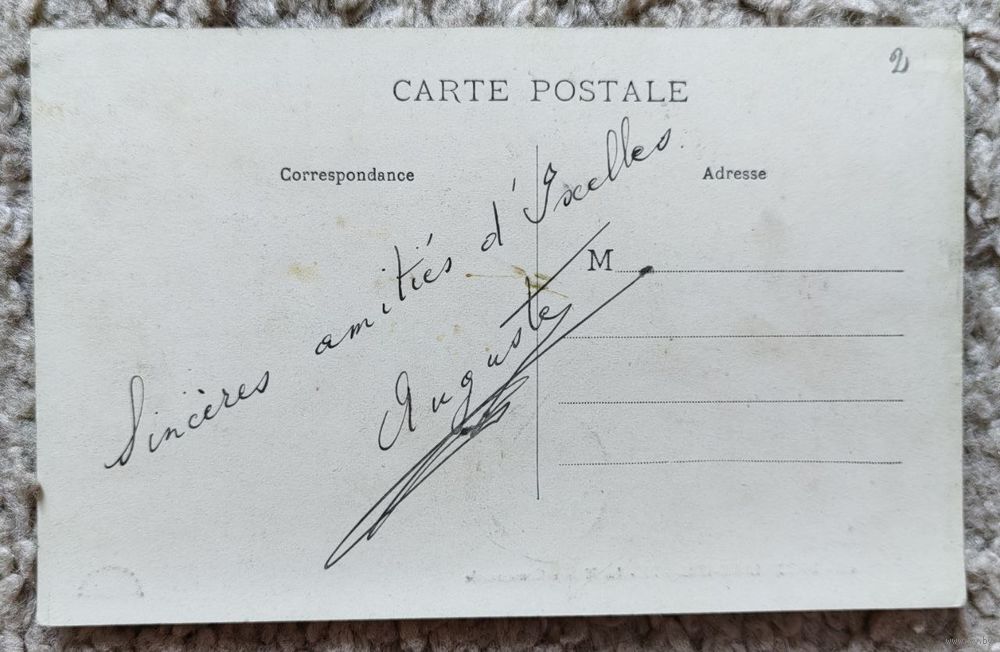 2
CARTE POSTALE
Correspondance
Adresse
Sincères amitiés d'Ixelles.
M
Auguste